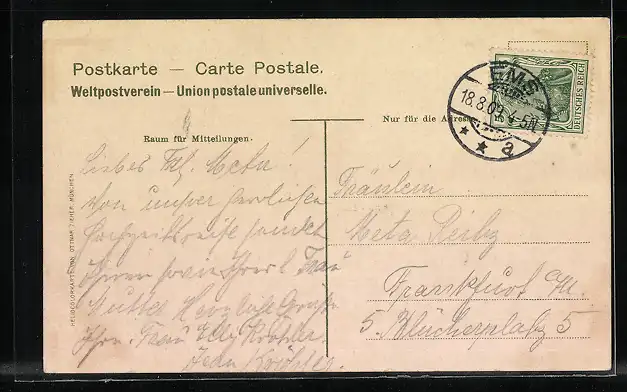 Postkarte — Carte Postale.
Weltpostverein — Union postale universelle.
EMS
18.8.09 4-5N
* * a
DEUTSCHES REICH
Nur für die Adresse
Raum für Mitteilungen.
Liebes Frl. Meta!
Von unsrer herrlichen
Hochzeitsreise sendet
Ihnen sowie Ihrer l. Frau
Mutter Herzliche Grüße
Ihre Frau Elly
Jean
Fräulein
Meta
Frankfurt a/M.
5 Blücherplatz 5
HELIOCOLORKARTE VON OTTMAR ZIEHER, MÜNCHEN